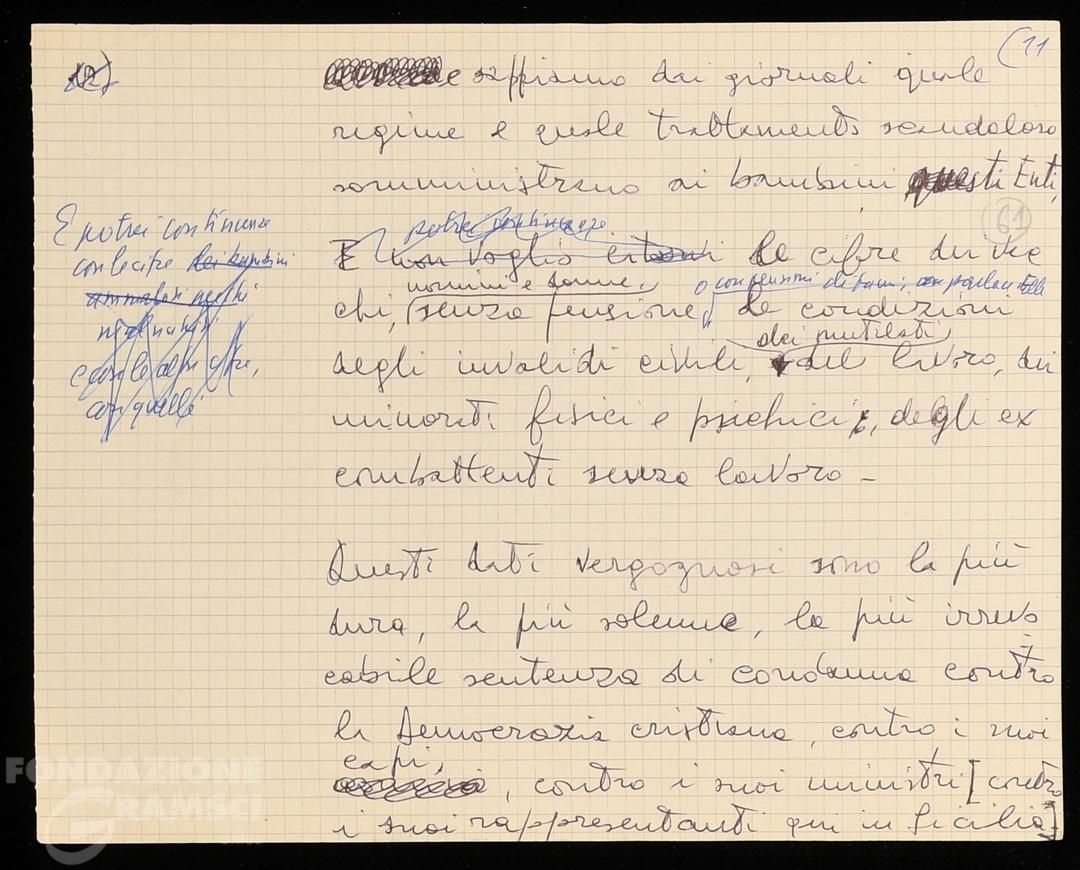 (11
12)
e sappiamo dai giornali quale
regime e quale trattamento scandaloso
somministrano ai bambini questi Enti,
61
E potrei continuare
con le cifre dei bambini
ammalati
e con le altre cifre,
con quelle
potrei continuare
E non voglio citarvi le cifre dei vec
uomini e donne, o con pensioni di fame,
chi, senza pensione, le condizioni
dei mutilati
degli invalidi civili, del lavoro, dei
minorati fisici e psichici, degli ex
combattenti senza lavoro -
Questi dati vergognosi sono la più
dura, la più solenne, la più irrevo
cabile sentenza di condanna contro
la Democrazia cristiana, contro i suoi
capi,
, contro i suoi ministri [contro
i suoi rappresentanti qui in Sicilia]
FONDAZIONE
GRAMSCI